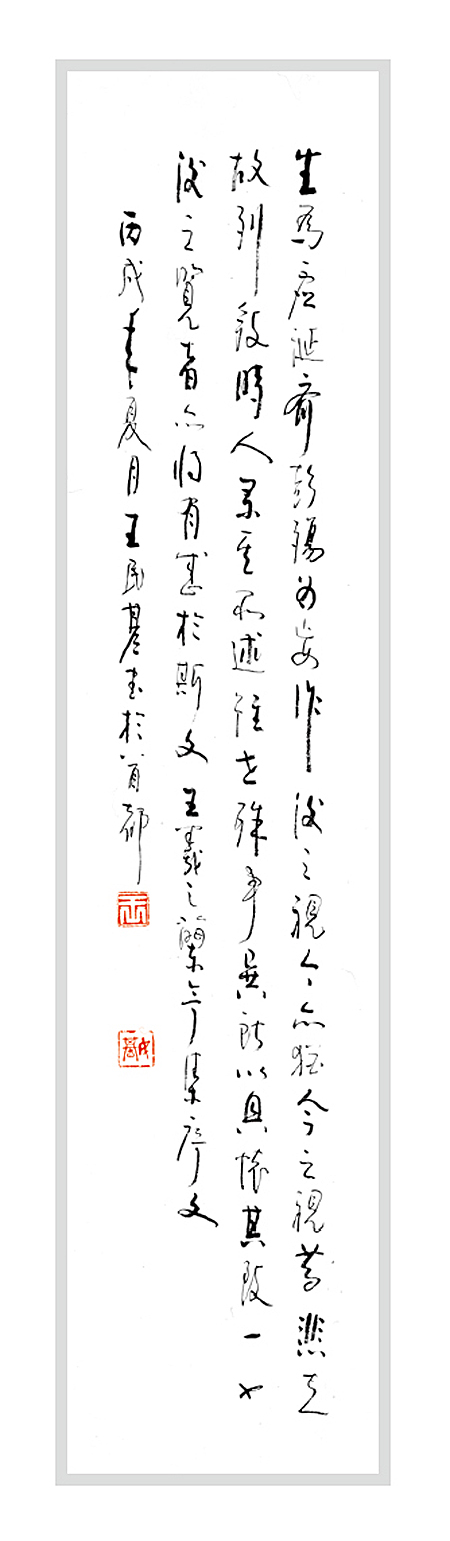 生為虛誕齊彭殤為妄作後之視今亦猶今之視昔悲夫
故列敘時人錄其所述雖世殊事異所以興懷其致一也
後之覽者亦將有感於斯文王羲之蘭亭集序文
丙戌年夏月王民基書於首都
王